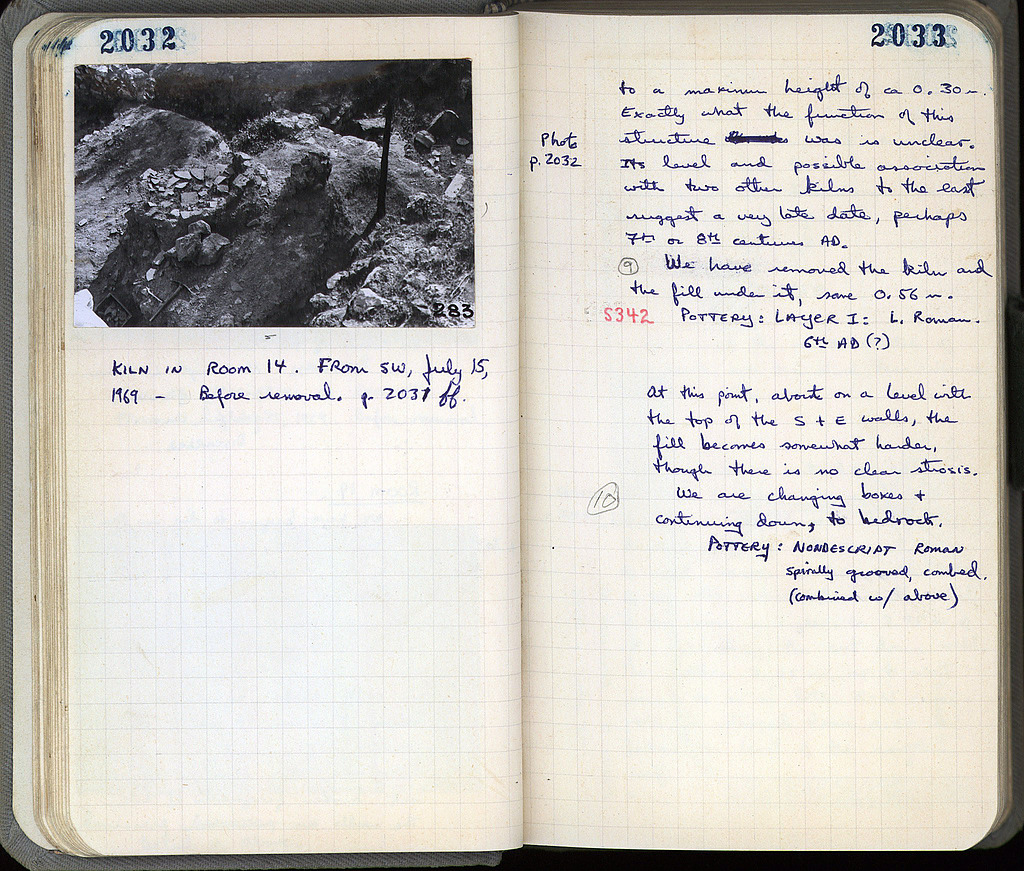 2032
283
KILN IN ROOM 14. FROM SW, July 15,
1969 - Before removal. p. 2031 ff.
2033
to a maximum height of ca 0.30 m.
Exactly what the function of this
Photo
p. 2032
structure was is unclear.
Its level and possible association
with two other kilns to the east
suggest a very late date, perhaps
7th or 8th centuries AD.
9 We have removed the kiln and
the fill under it, some 0.56 m.
S342 POTTERY: LAYER I: L. Roman.
6th AD (?)
At this point, about on a level with
the top of the S + E walls, the
fill becomes somewhat harder,
though there is no clear strosis.
10 We are changing boxes +
continuing down, to bedrock.
POTTERY: NONDESCRIPT ROMAN
spirally grooved, combed.
(combined w/ above)